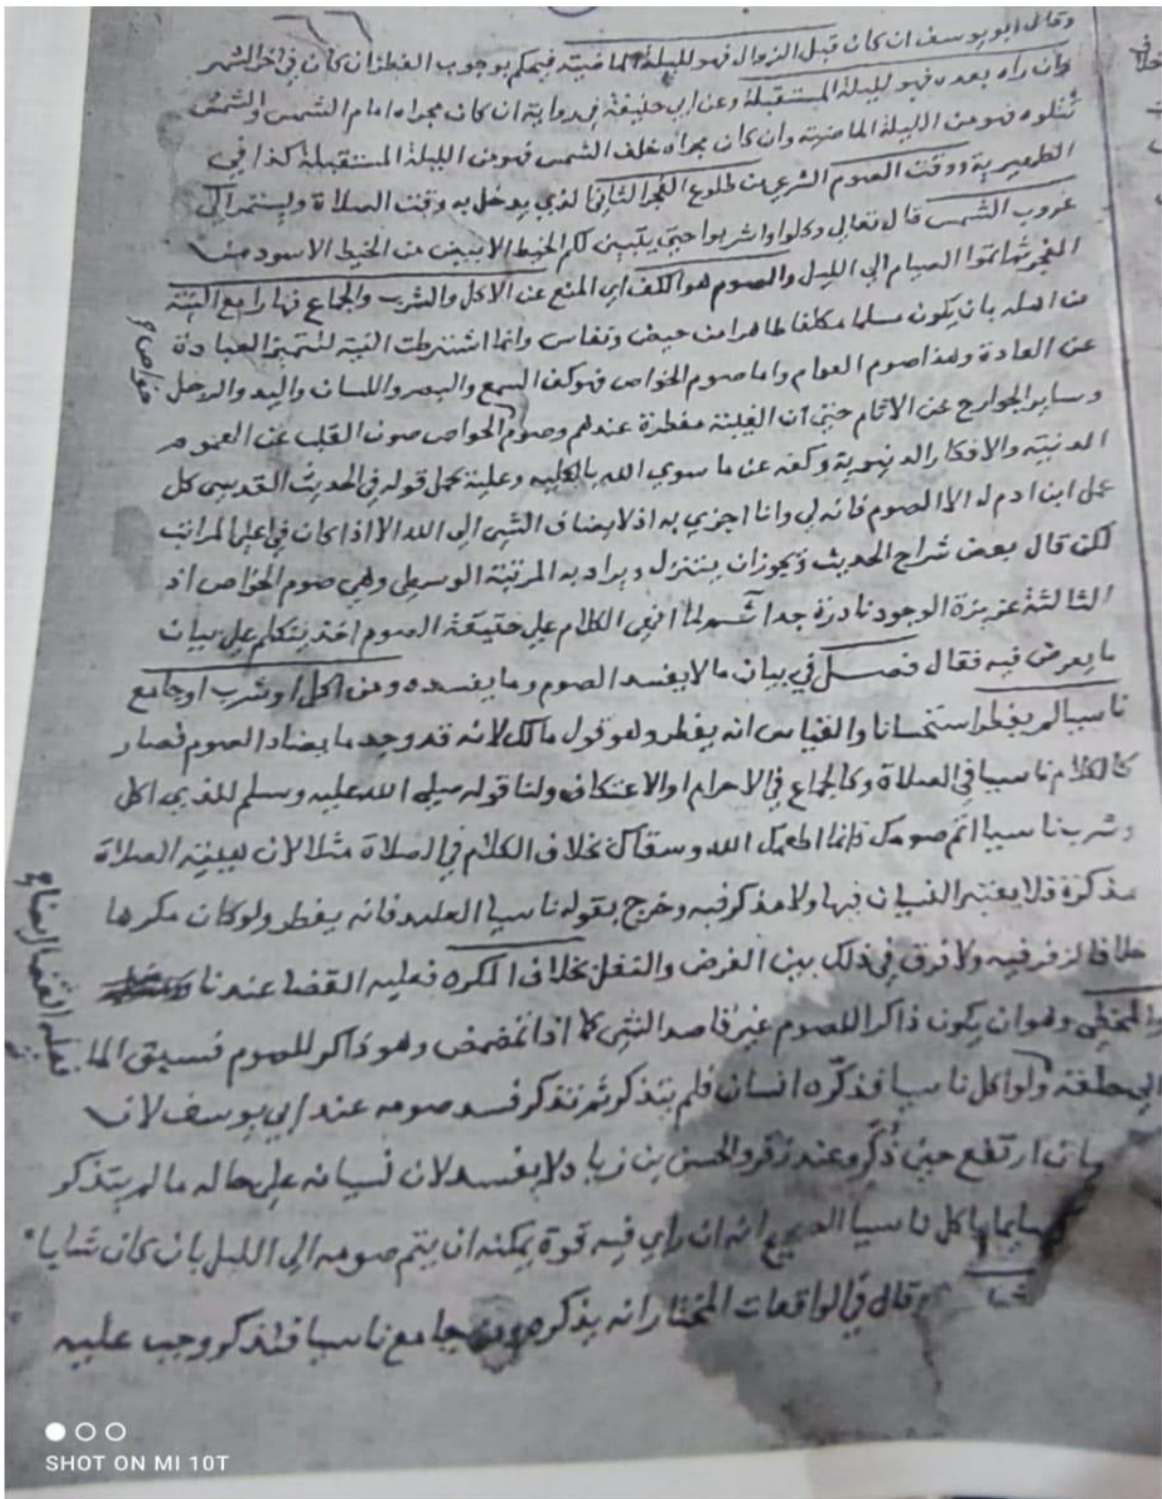 وقال ابو يوسف ان كان قبل الزوال فهو لليلة الماضية فيحكم بوجوب الفطر ان كان في اخر الشهر
وان راه بعده فهو لليلة المستقبلة وعن ابي حنيفة في رواية ان كان مجراه امام الشمس والشمس
تتلوه فهو من الليلة الماضية وان كان مجراه خلف الشمس فهو من الليلة المستقبلة كذا في
الظهيرية ووقت الصوم الشرعي من طلوع الفجر الثاني الذي يدخل به وقت الصلاة ويستمر الي
غروب الشمس قال تعالي وكلوا واشربوا حتي يتبين لكم الخيط الابيض من الخيط الاسود من
الفجر ثم اتموا الصيام الي الليل والصوم هو الكف اي المنع عن الاكل والشرب والجماع نهارا مع النية
من اهله بان يكون مسلما مكلفا طاهرا من حيض ونفاس وانما اشترطت النية لتتميز العبادة
عن العادة وهذا صوم العوام واما صوم الخواص فهو كف السمع والبصر واللسان واليد والرجل
وساير الجوارح عن الاثام حتي ان الغيبة مفطرة عندهم وصوم الخواص صون القلب عن الهموم
الدنية والافكار الدنيوية وكفه عن ما سوي الله بالكليه وعليه يحمل قوله في الحديث القدسي كل
عمل ابن ادم له الا الصوم فانه لي وانا اجزي به اذ لا يضاف الشي الي الله الا اذا كان في اعلي المراتب
لكن قال بعض شراح الحديث ويجوز ان يتنزل ويراد به المرتبة الوسطي وهي صوم الخواص اذ
الثالثة عزيزة الوجود نادرة جدا ثم لما انهي الكلام علي حقيقة الصوم اخذ يتكلم علي بيان
ما يعرض فيه فقال فصل في بيان ما لا يفسد الصوم وما يفسده ومن اكل او شرب او جامع
ناسيا لم يفطر استحسانا والقياس انه يفطر وهو قول مالك لانه قد وجد ما يضاد الصوم فصار
كالكلام ناسيا في الصلاة وكالجماع في الاحرام او الاعتكاف ولنا قوله صلي الله عليه وسلم للذي اكل
وشرب ناسيا اتم صومك فانما اطعمك الله وسقاك بخلاف الكلام في الصلاة مثلا لان هيئة الصلاة
مذكرة فلا يعتبر النسيان فيها ولا مذكر فيه وخرج بقوله ناسيا العامد فانه يفطر ولو كان مكرها
خلافا لزفر فيه ولا فرق في ذلك بين الفرض والنفل بخلاف المكره فعليه القضا عندنا
والمخطي وهو ان يكون ذاكرا للصوم غير قاصد الشي كما اذا تمضمض وهو ذاكر للصوم فسبق الما
الي حلقه ولو اكل ناسيا فذكره انسان فلم يتذكر ثم تذكر فسد صومه عند ابي يوسف لان
ارتفع حين ذكر وعند زفر والحسن بن زياد لا يفسد لان نسيانه علي حاله ما لم يتذكر
صايما ياكل ناسيا انه ان راي فيه قوة يمكنه ان يتم صومه الي الليل بان كان شابا
وقال في الواقعات المختار انه يذكره جامع ناسيا فتذكر وجب عليه
خواص
فعليه القضا
SHOT ON MI 10T